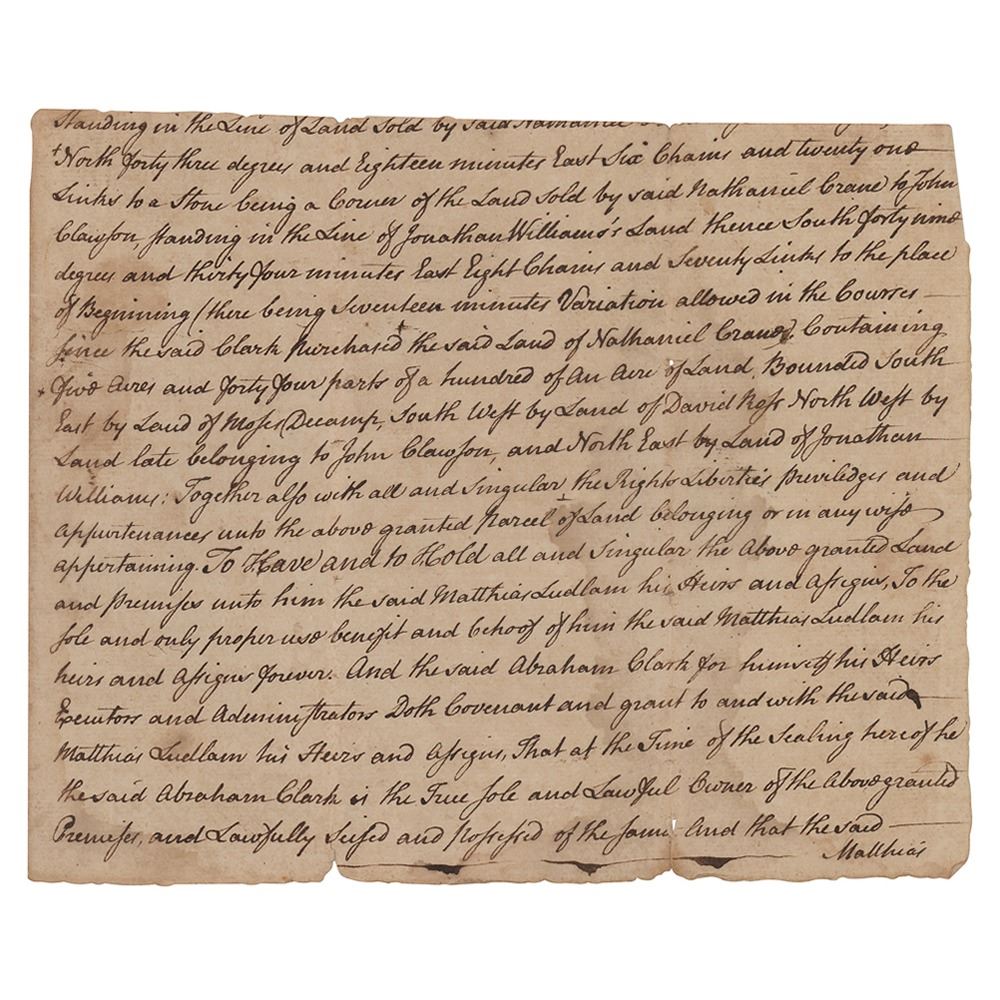 Standing in the Line of Land Sold by said Nathaniel
North forty three degrees and Eighteen minutes East Six Chains and twenty one
Links to a Stone being a Corner of the Land sold by said Nathaniel Crane to John
Clawson, standing in the Line of Jonathan Williams's Land thence South forty nine
degrees and thirty four minutes East Eight Chains and Seventy Links to the place
of Beginning (there being Seventeen minutes Variation allowed in the Courses
since the said Clark Purchased the said Land of Nathaniel Crane). Containing
five Acres and forty four parts of a hundred of An Acre of Land. Bounded South
East by Land of Moses Decamp, South West by Land of David Ross North West by
Land late belonging to John Clawson, and North East by Land of Jonathan
Williams: Together also with all and Singular the Rights Liberties Priviledges and
appurtenances unto the above granted Parcel of Land belonging or in any wise
appertaining. To Have and to Hold all and Singular the Above granted Land
and Premises unto him the said Matthias Ludlam his Heirs and Assigns, To the
sole and only proper use benefit and behoof of him the said Matthias Ludlam his
heirs and Assigns forever. And the said Abraham Clark for himself his Heirs
Executors and Administrators Doth Covenant and grant to and with the said
Matthias Ludlam his Heirs and Assigns, That at the Time of the Sealing hereof he
the said Abraham Clark is the True sole and Lawful Owner of the Above granted
Premises, and Lawfully Seised and Possessed of the same And that the said
Matthias